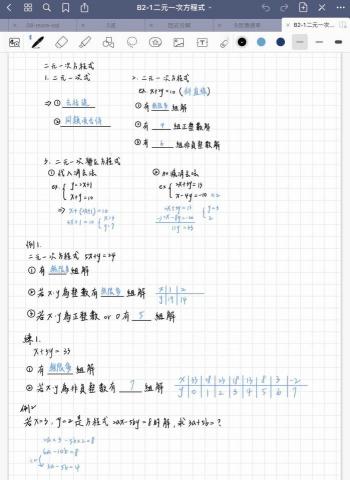 B2-1二元一次方程式
B2-1二元一次...
二元一次方程式
1. 二元一次式
2. 二元一次方程式
ex. x+y=10 (斜直線)
⇒ ①
① 有 無限多 組解
② 同類項合併
② 有 組正整數解
③ 有 6 組非負整數解
3. 二元一次聯立方程式
① 代入消去法
② 加減消去法
ex.
ex
x+y=10
例1.
二元一次方程式 5x+y=24
① 有 無限多 組解
② 若x、y為整數有 無限多 組解
x 1 2
y 19 14
③ 若x、y為正整數 or 0有 5 組解
練1.
x+5y=33
① 有 無限多 組解
② 若x、y為非負整數有 7 組解
x 33 28 23 18 13 8 3 -2
y 0 1 2 3 4 5 6 7
例2
若x=3，y=2是方程式 2ax-5by=8的解，求3a+5b=?
6a-10b=8
3a-5b=4